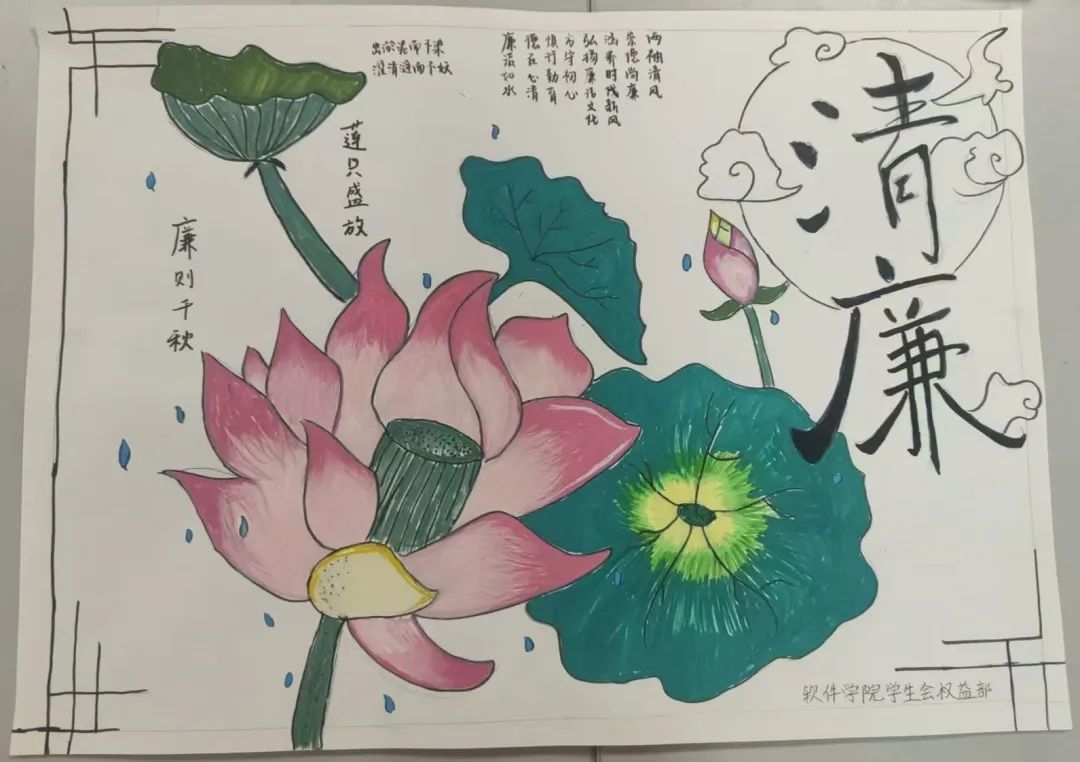 清廉
两袖清风
崇德尚廉
涵养时代新风
弘扬廉洁文化
方守初心
慎行勤育
德在心清
廉洁如水
出淤泥而不染
濯清涟而不妖
莲只盛放
廉则千秋
软件学院学生会权益部